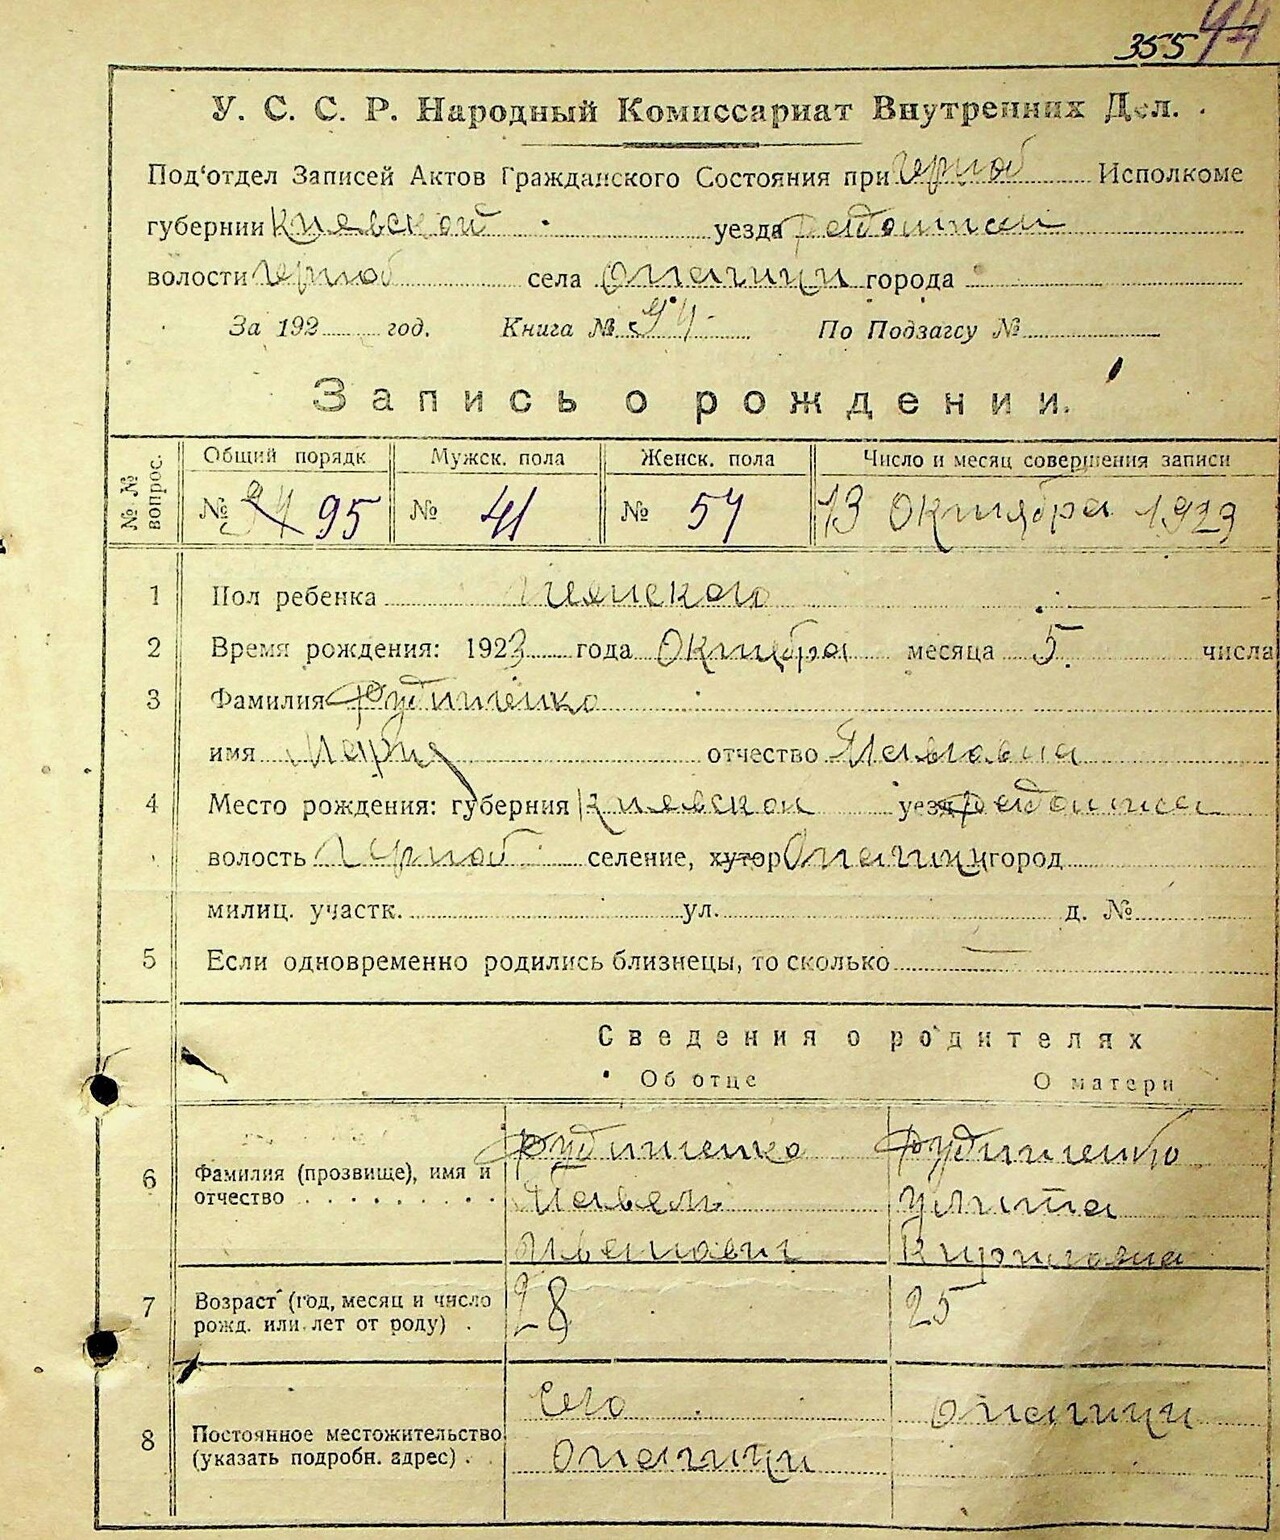 355 94
У. С. С. Р. Народный Комиссариат Внутренних Дел.
Под'отдел Записей Актов Гражданского Состояния при Черноб Исполкоме
губернии Киевской уезда
волости Черноб села Опачичи города
За 192 год. Книга № 94 По Подзагсу №
Запись о рождении.
№ № вопрос. Общий порядк Мужск. пола Женск. пола Число и месяц совершения записи
№ 94 95 № 41 № 54 13 Октября 1923
1 Пол ребенка женского
2 Время рождения: 1923 года Октября месяца 5 числа
3 Фамилия Рудниченко
имя Мария отчество Павловна
4 Место рождения: губерния Киевской уезд
волость Черноб селение, хутор Опачичи город
милиц. участк. ул. д. №
5 Если одновременно родились близнецы, то сколько —
Сведения о родителях
Об отце О матери
6 Фамилия (прозвище), имя и отчество
Рудниченко Рудниченко
Павель Улита
Иванович Кириловна
7 Возраст (год, месяц и число рожд. или лет от роду) 28 25
8 Постоянное местожительство (указать подробн. адрес)
Село Опачичи
Опачичи